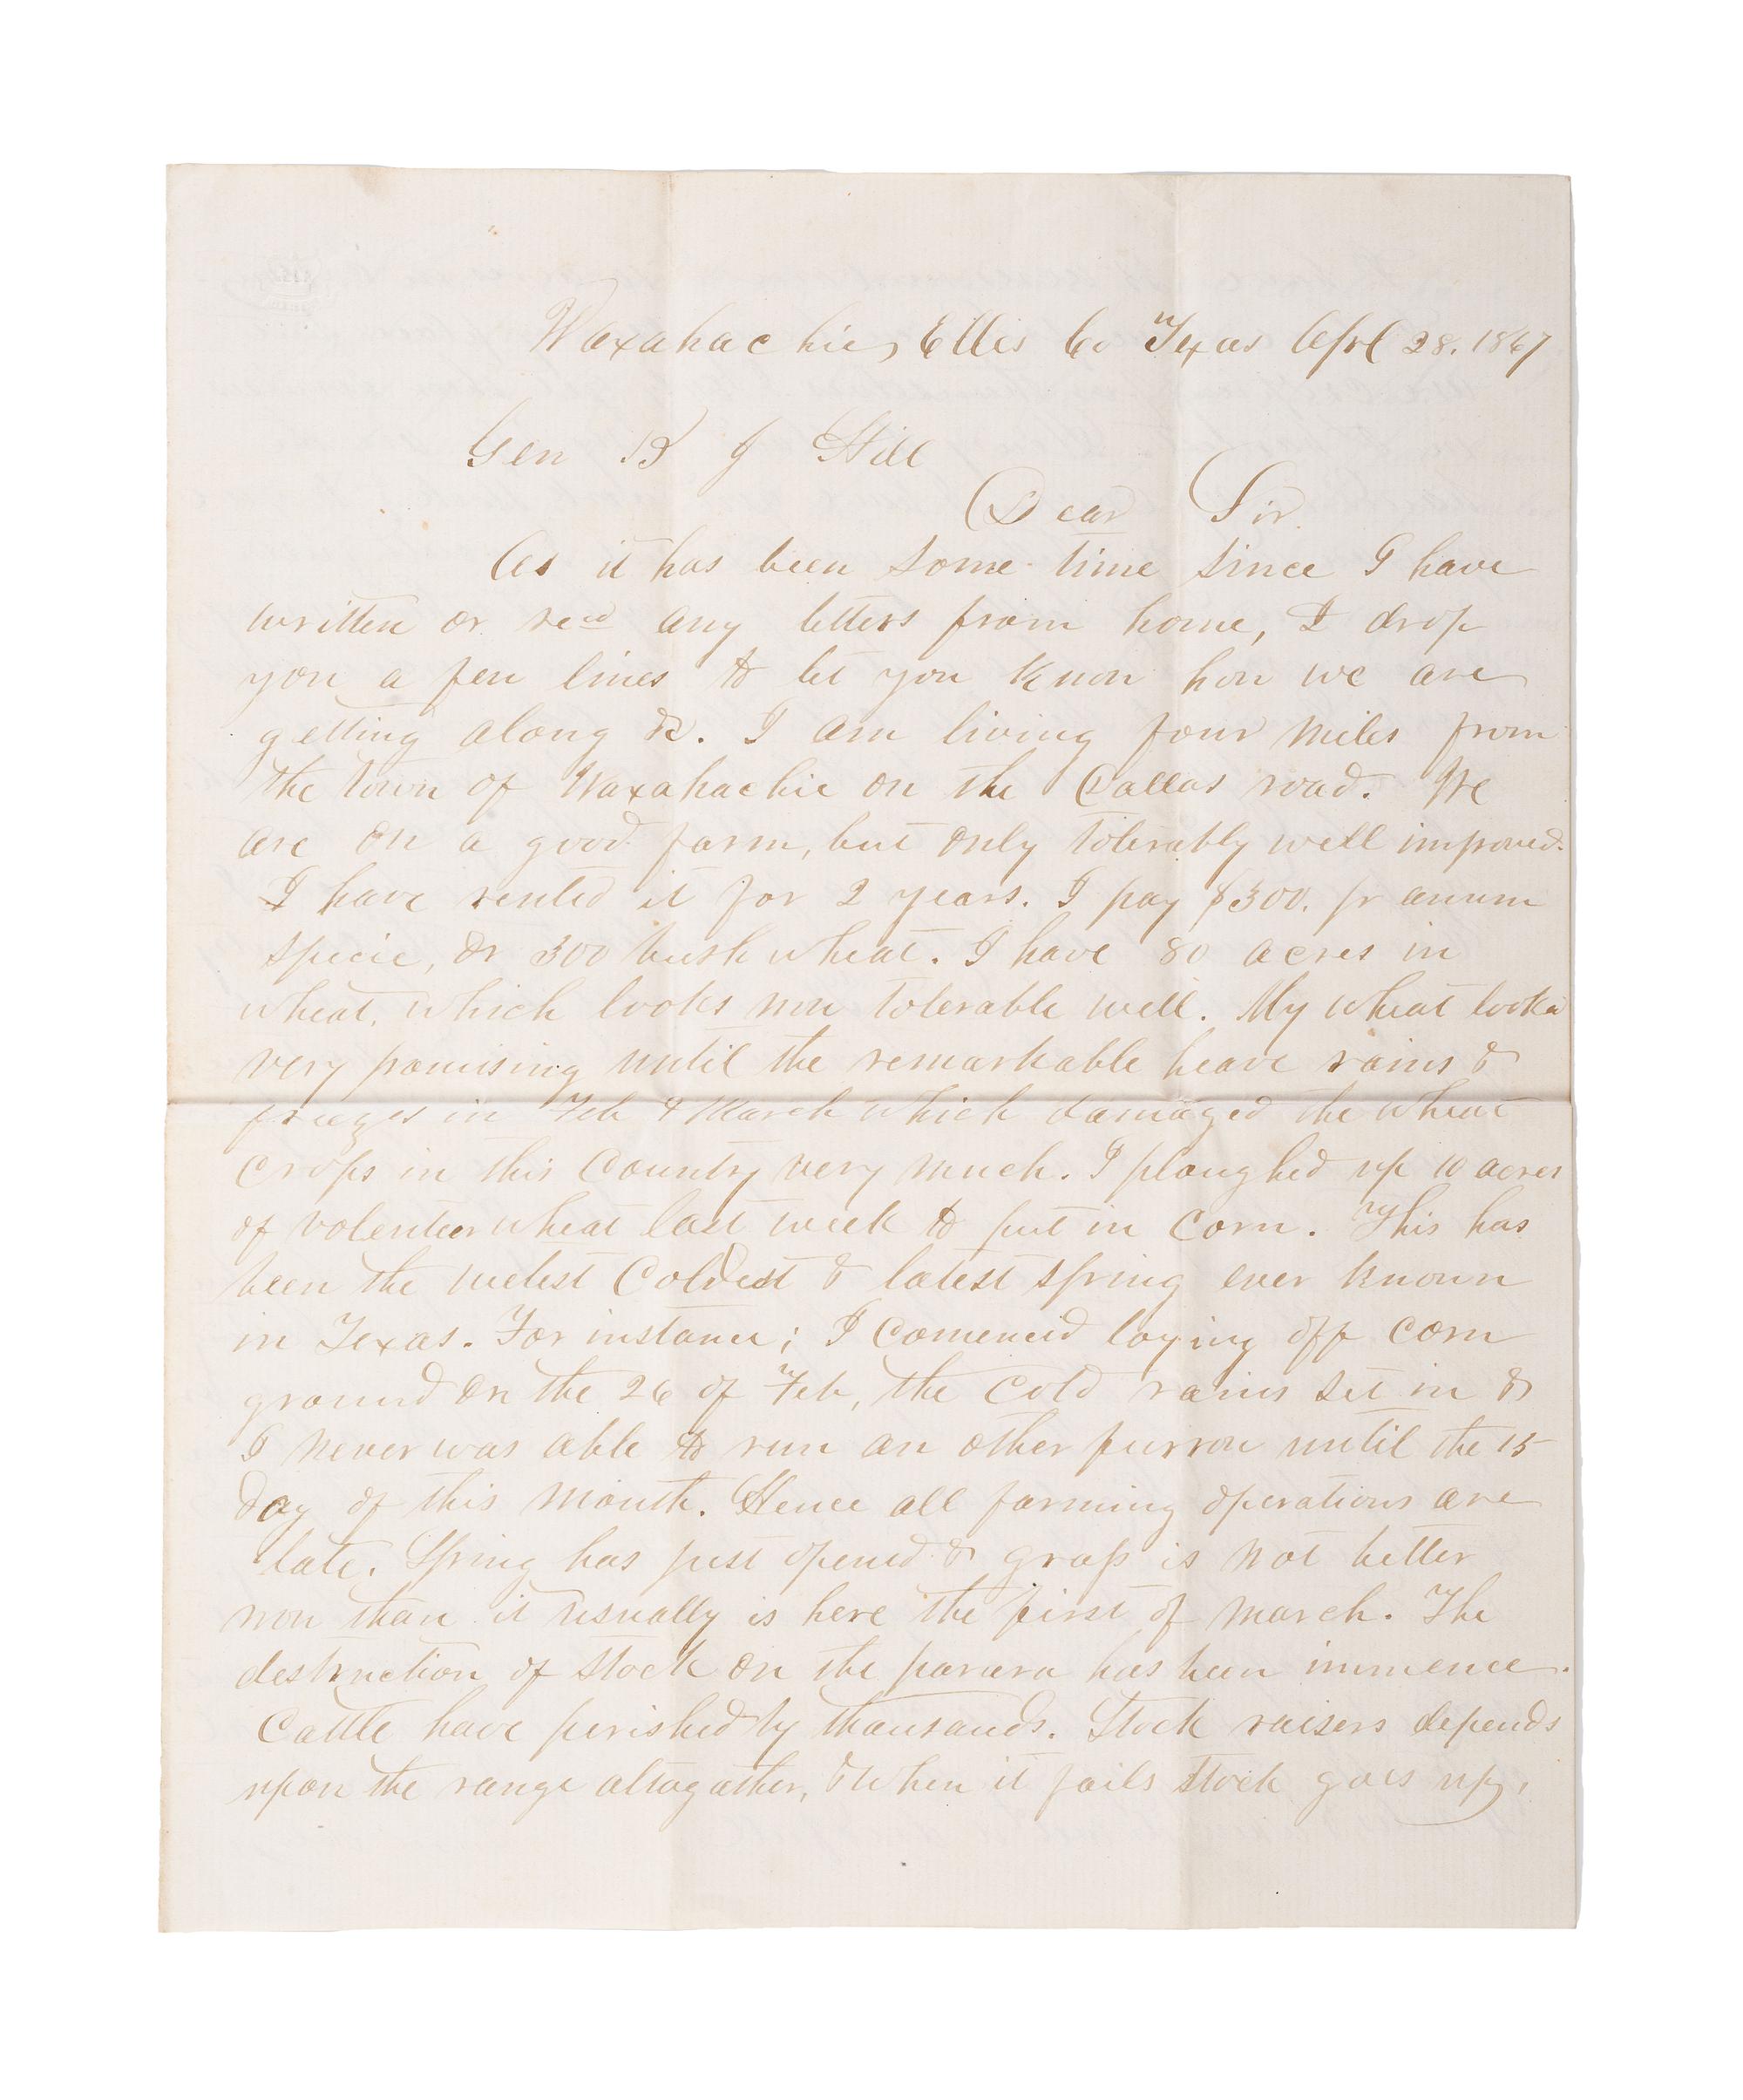 Waxahachie, Ellis Co Texas Apl 28. 1867
Gen B J Hill
Dear Sir.
As it has been some time since I have
written or recd any letters from home, I drop
you a few lines to let you know how we are
getting along &c. I am living four miles from
the town of Waxahachie on the Dallas road. We
are on a good farm, but only tolerably well improved.
I have rented it for 2 years. I pay $300. pr anum
specie, or 300 bush wheat. I have 80 acres in
wheat, which looks now tolerable well. My wheat lookd
very promising until the remarkable heave rains &
freezes in Feb & March which damaged the wheat
crops in this Country very much. I ploughed up 10 acres
of volenteer wheat last week to put in Corn. This has
been the wetest Coldest & latest spring ever known
in Texas. For instance; I Comenced laying off corn
ground on the 26 of Feb, the cold rains set in &
I never was able to run an other furrow until the 15
day of this month. Hence all farming operations are
late. Spring has just opened & grass is not better
now than it usually is here the first of march. The
destruction of stock on the parara has been immence.
Cattle have perished by thousands. Stock raisers depends
upon the range altogather, & when it fails stock goes up,